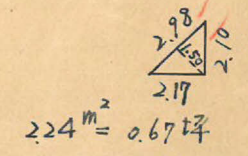 2.98
1.50
2.10
2.17
2.24 m² = 0.67坪